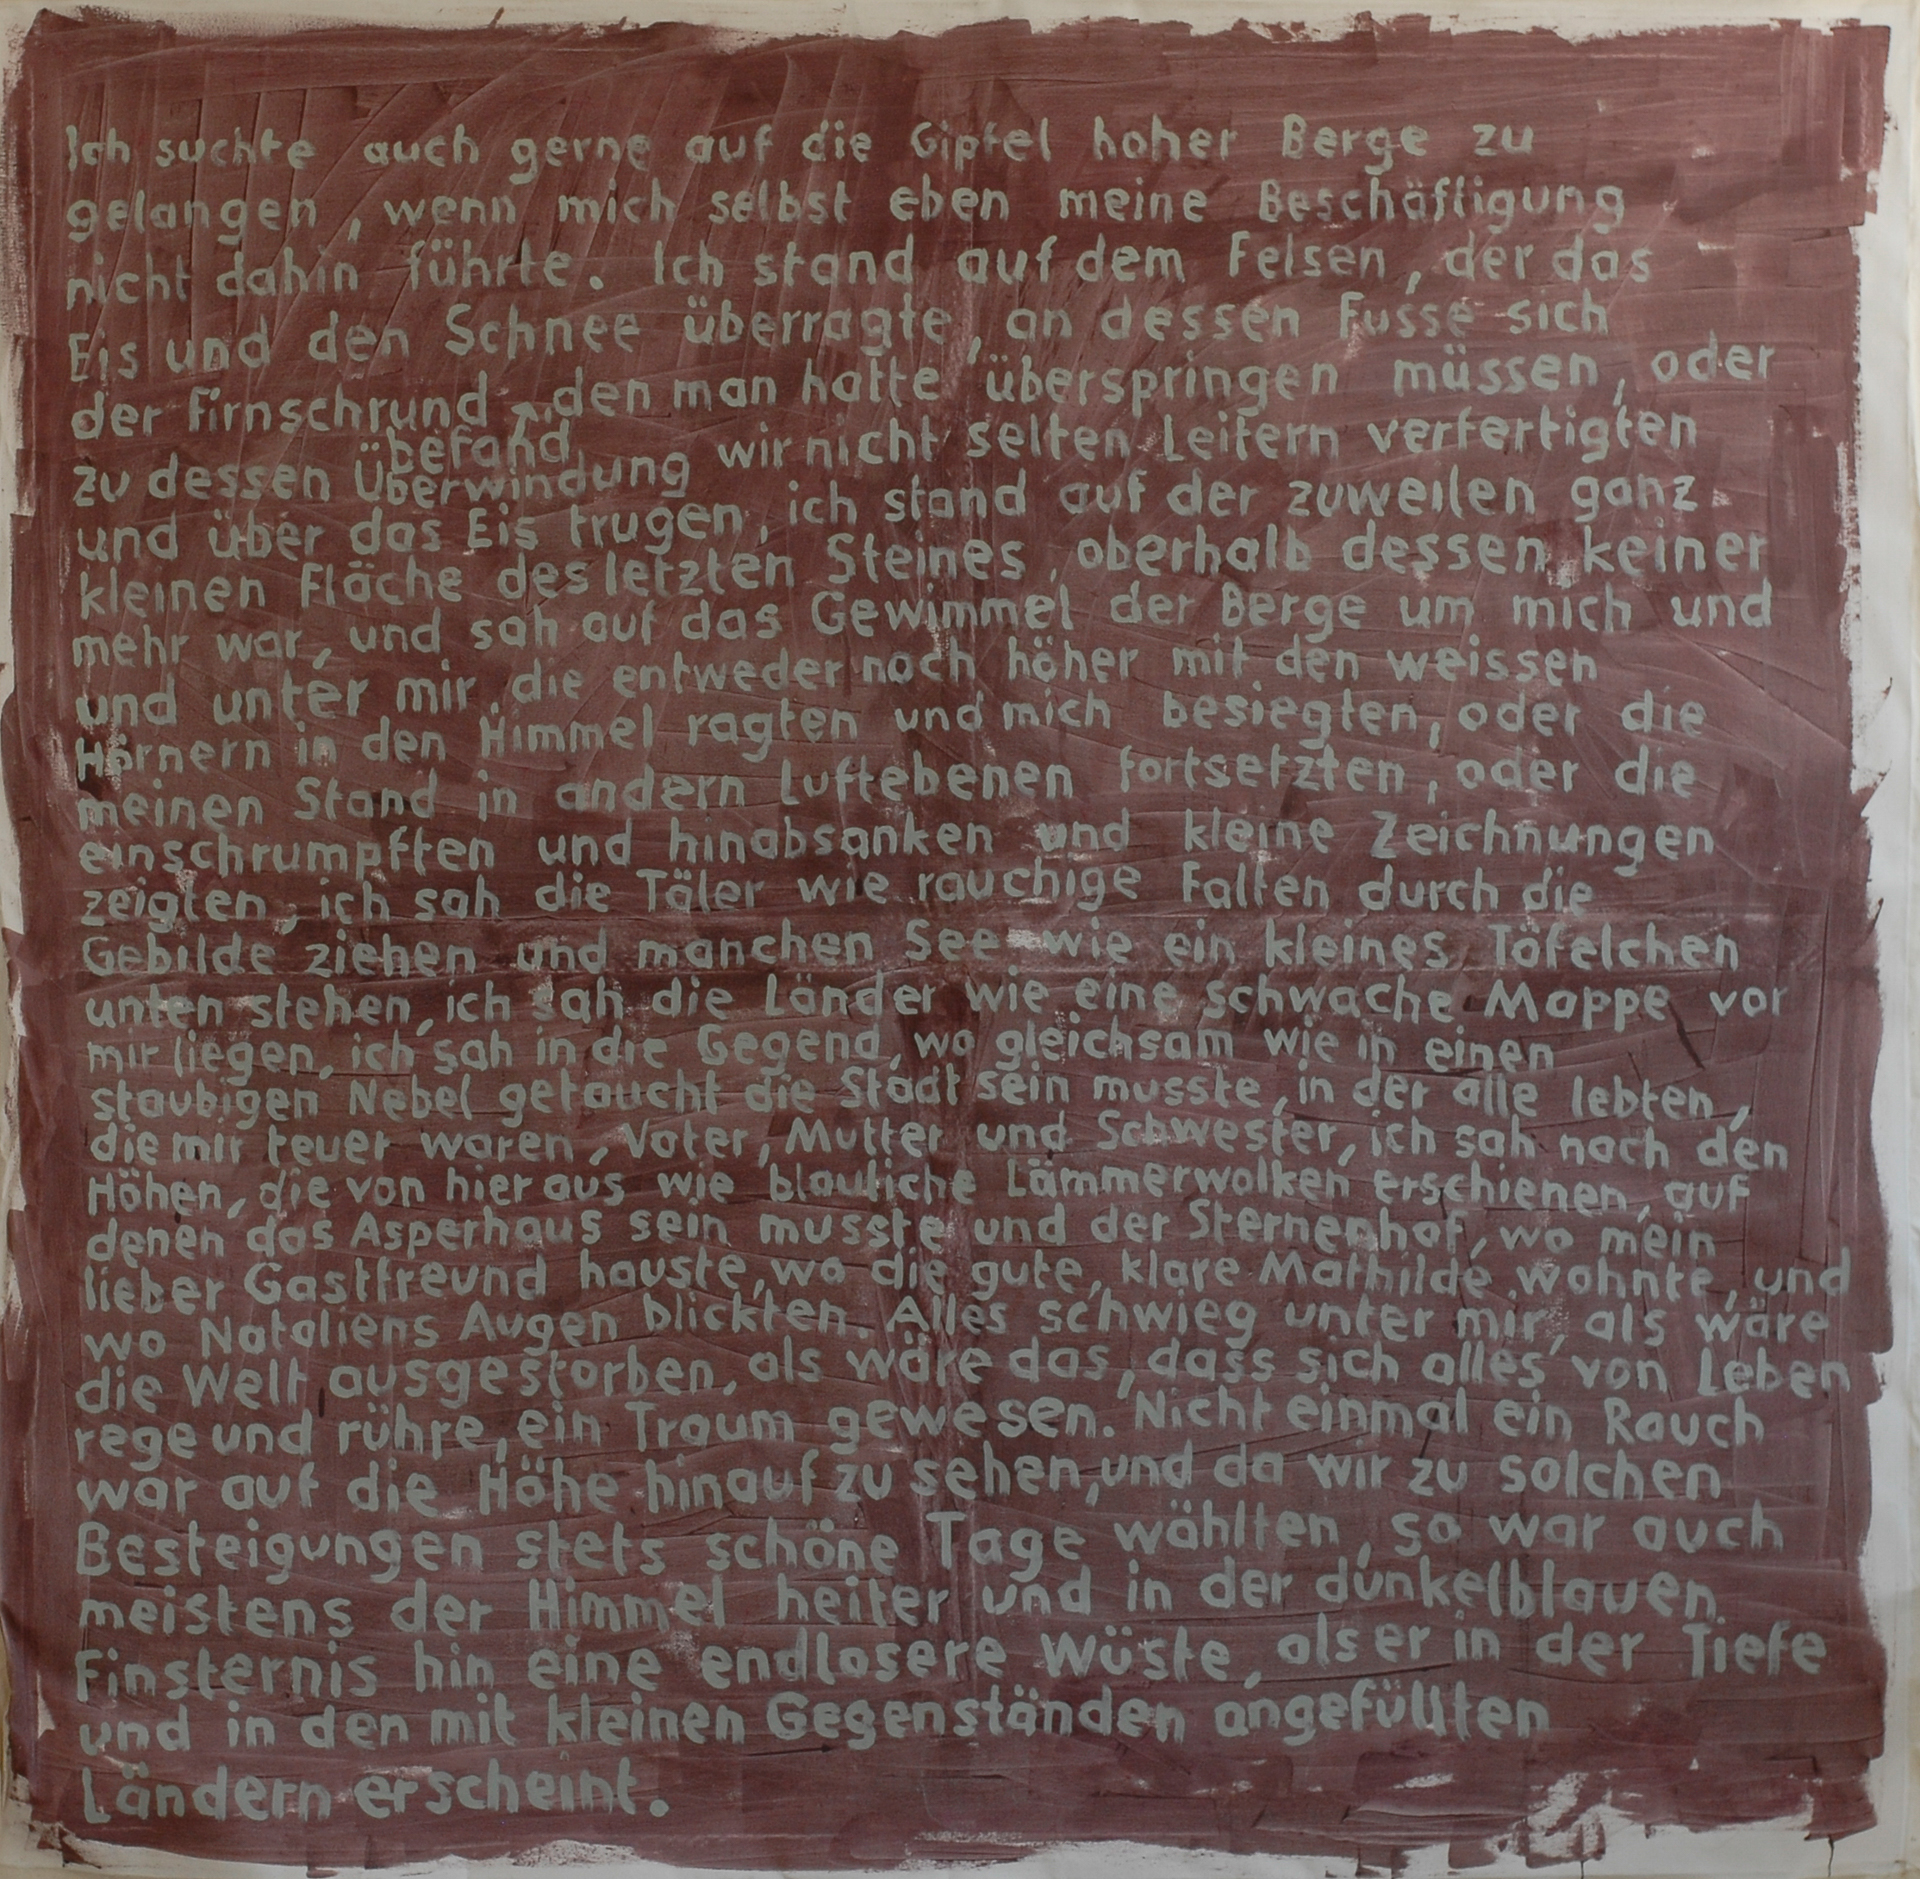 Ich suchte auch gerne auf die Gipfel hoher Berge zu
gelangen, wenn mich selbst eben meine Beschäftigung
nicht dahin führte. Ich stand auf dem Felsen, der das
Eis und den Schnee überragte, an dessen Fusse sich
der Firnschrund, den man hatte überspringen müssen, oder
befand
zu dessen Überwindung wir nicht selten Leitern verfertigten
und über das Eis trugen, ich stand auf der zuweilen ganz
kleinen Fläche des letzten Steines, oberhalb dessen keiner
mehr war, und sah auf das Gewimmel der Berge um mich und
und unter mir, die entweder noch höher mit den weissen
Hörnern in den Himmel ragten und mich besiegten, oder die
meinen Stand in andern Luftebenen fortsetzten, oder die
einschrumpften und hinabsanken und kleine Zeichnungen
zeigten, ich sah die Täler wie rauchige Falten durch die
Gebilde ziehen und manchen See wie ein kleines Töfelchen
unten stehen, ich sah die Länder wie eine schwache Mappe vor
mir liegen, ich sah in die Gegend, wo gleichsam wie in einen
staubigen Nebel getaucht die Stadt sein musste, in der alle lebten,
die mir teuer waren, Vater, Mutter und Schwester, ich sah nach den
Höhen, die von hier aus wie blauliche Lämmerwolken erschienen, auf
denen das Asperhaus sein musste und der Sternenhof, wo mein
lieber Gastfreund hauste, wo die gute, klare Mathilde wohnte, und
wo Nataliens Augen blickten. Alles schwieg unter mir, als wäre
die Welt ausgestorben, als wäre das, dass sich alles von Leben
rege und rühre, ein Traum gewesen. Nicht einmal ein Rauch
war auf die Höhe hinauf zu sehen, und da wir zu solchen
Besteigungen stets schöne Tage wählten, so war auch
meistens der Himmel heiter und in der dunkelblauen
Finsternis hin eine endlosere Wüste, als er in der Tiefe
und in den mit kleinen Gegenständen angefüllten
Ländern erscheint.